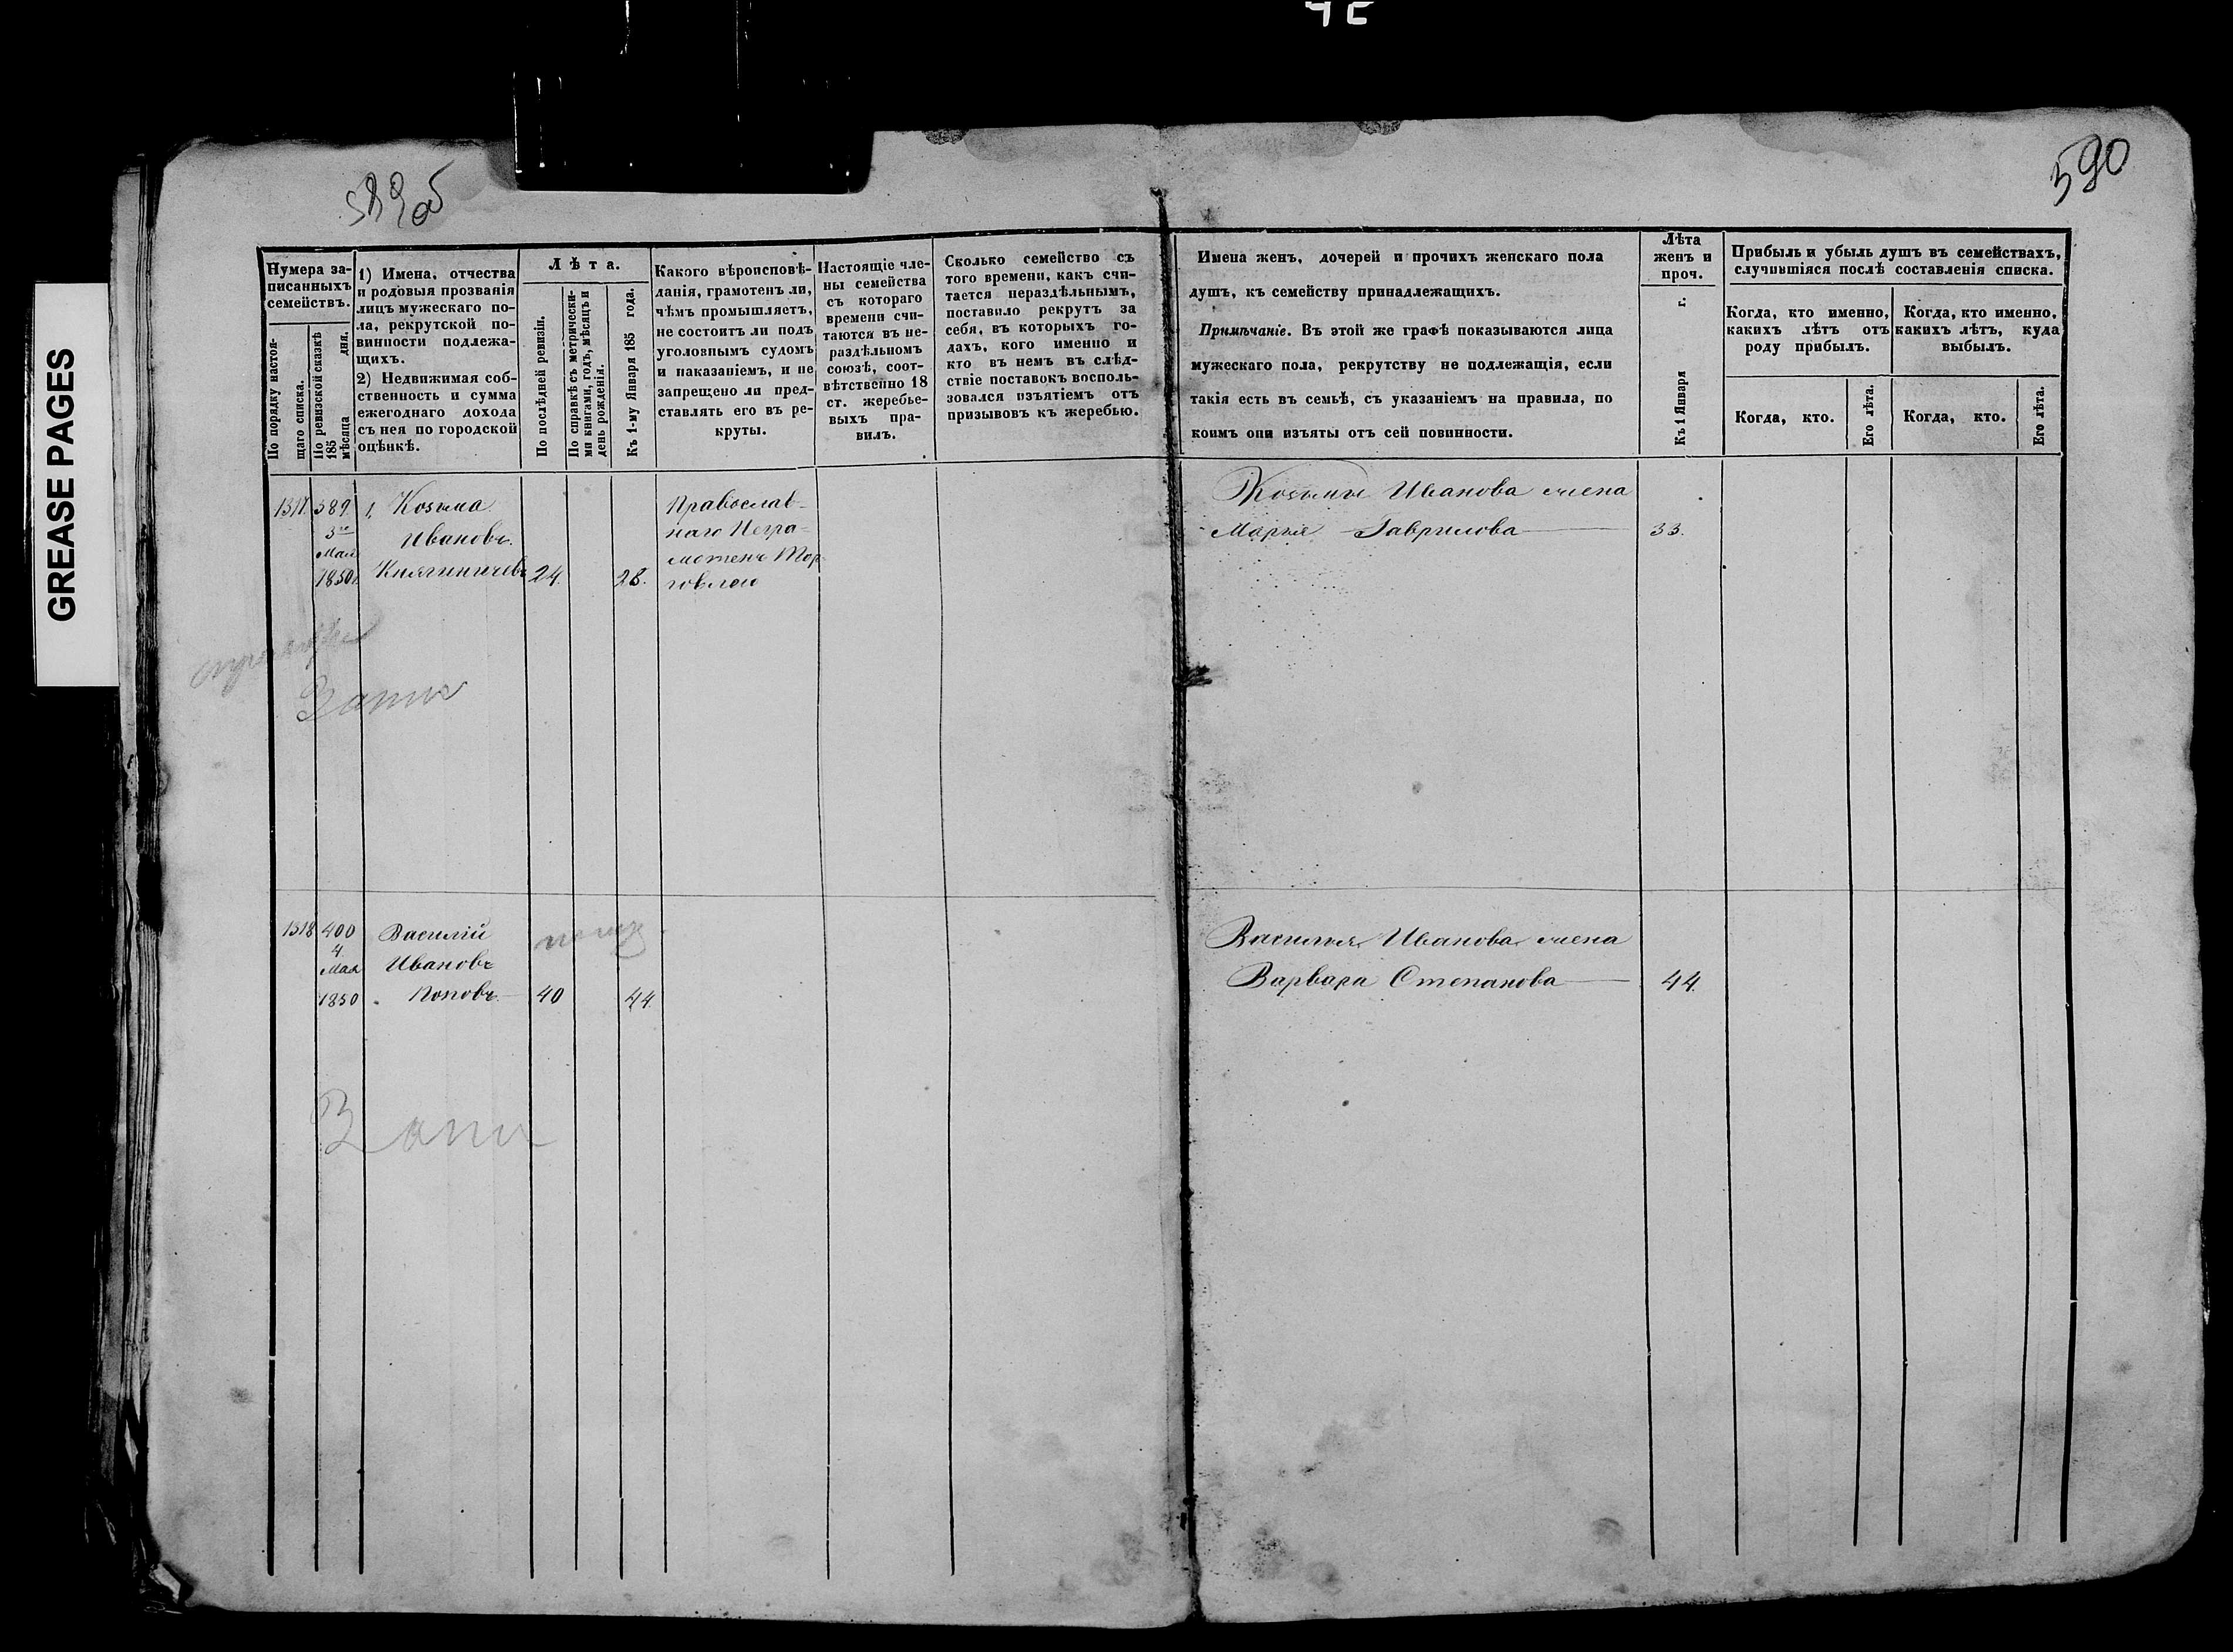 GREASE PAGES
589об
590
Нумера за-
писанныхъ
семействъ.
По порядку настоя-
щаго списка.
По ревизской сказкѣ
185 мѣсяца дня.
1) Имена, отчества
и родовыя прозванія
лицъ мужескаго по-
ла, рекрутской по-
винности подлежа-
щихъ.
2) Недвижимая соб-
ственность и сумма
ежегоднаго дохода
съ нея по городской
оцѣнкѣ.
Лѣта.
По послѣдней ревизіи.
По справкѣ съ метрически-
ми книгами, годъ, мѣсяцъ и
день рожденія.
Къ 1-му Января 185 года.
Какого вѣроисповѣ-
данія, грамотенъ ли,
чѣмъ промышляетъ,
не состоитъ ли подъ
уголовнымъ судомъ
и наказаніемъ, и не
запрещено ли пред-
ставлять его въ ре-
круты.
Настоящіе чле-
ны семейства
съ котораго
времени счи-
таются въ не-
раздѣльномъ
союзѣ, соот-
вѣтственно 18
ст. жеребье-
выхъ пра-
вилъ.
Сколько семейство съ
того времени, какъ счи-
тается нераздѣльнымъ,
поставило рекрутъ за
себя, въ которыхъ го-
дахъ, кого именно и
кто въ немъ въ слѣд-
ствіе поставокъ восполь-
зовался изъятіемъ отъ
призывовъ къ жеребью.
Имена женъ, дочерей и прочихъ женскаго пола
душъ, къ семейству принадлежащихъ.
Примѣчаніе. Въ этой же графѣ показываются лица
мужескаго пола, рекрутству не подлежащія, если
такія есть въ семьѣ, съ указаніемъ на правила, по
коимъ они изъяты отъ сей повинности.
Лѣта
женъ и
проч.
Къ 1 Января г.
Прибыль и убыль душъ въ семействахъ,
случившіяся послѣ составленія списка.
Когда, кто именно,
какихъ лѣтъ отъ
роду прибылъ.
Когда, кто именно,
какихъ лѣтъ, куда
выбылъ.
Когда, кто.
Его лѣта.
Когда, кто.
Его лѣта.
1317. 389. 1, Козьма Православ-
3го Ивановъ. наго Негра-
Мая мотенъ Тор-
1850 Княгиничевъ 24. 28. говлею
Козьмы Иванова жена
Марья Гаврилова 33.
1318 400 Василій
4 Мая Ивановъ
1850 Поповъ 40 44.
Василья Иванова жена
Варвара Степанова 44.